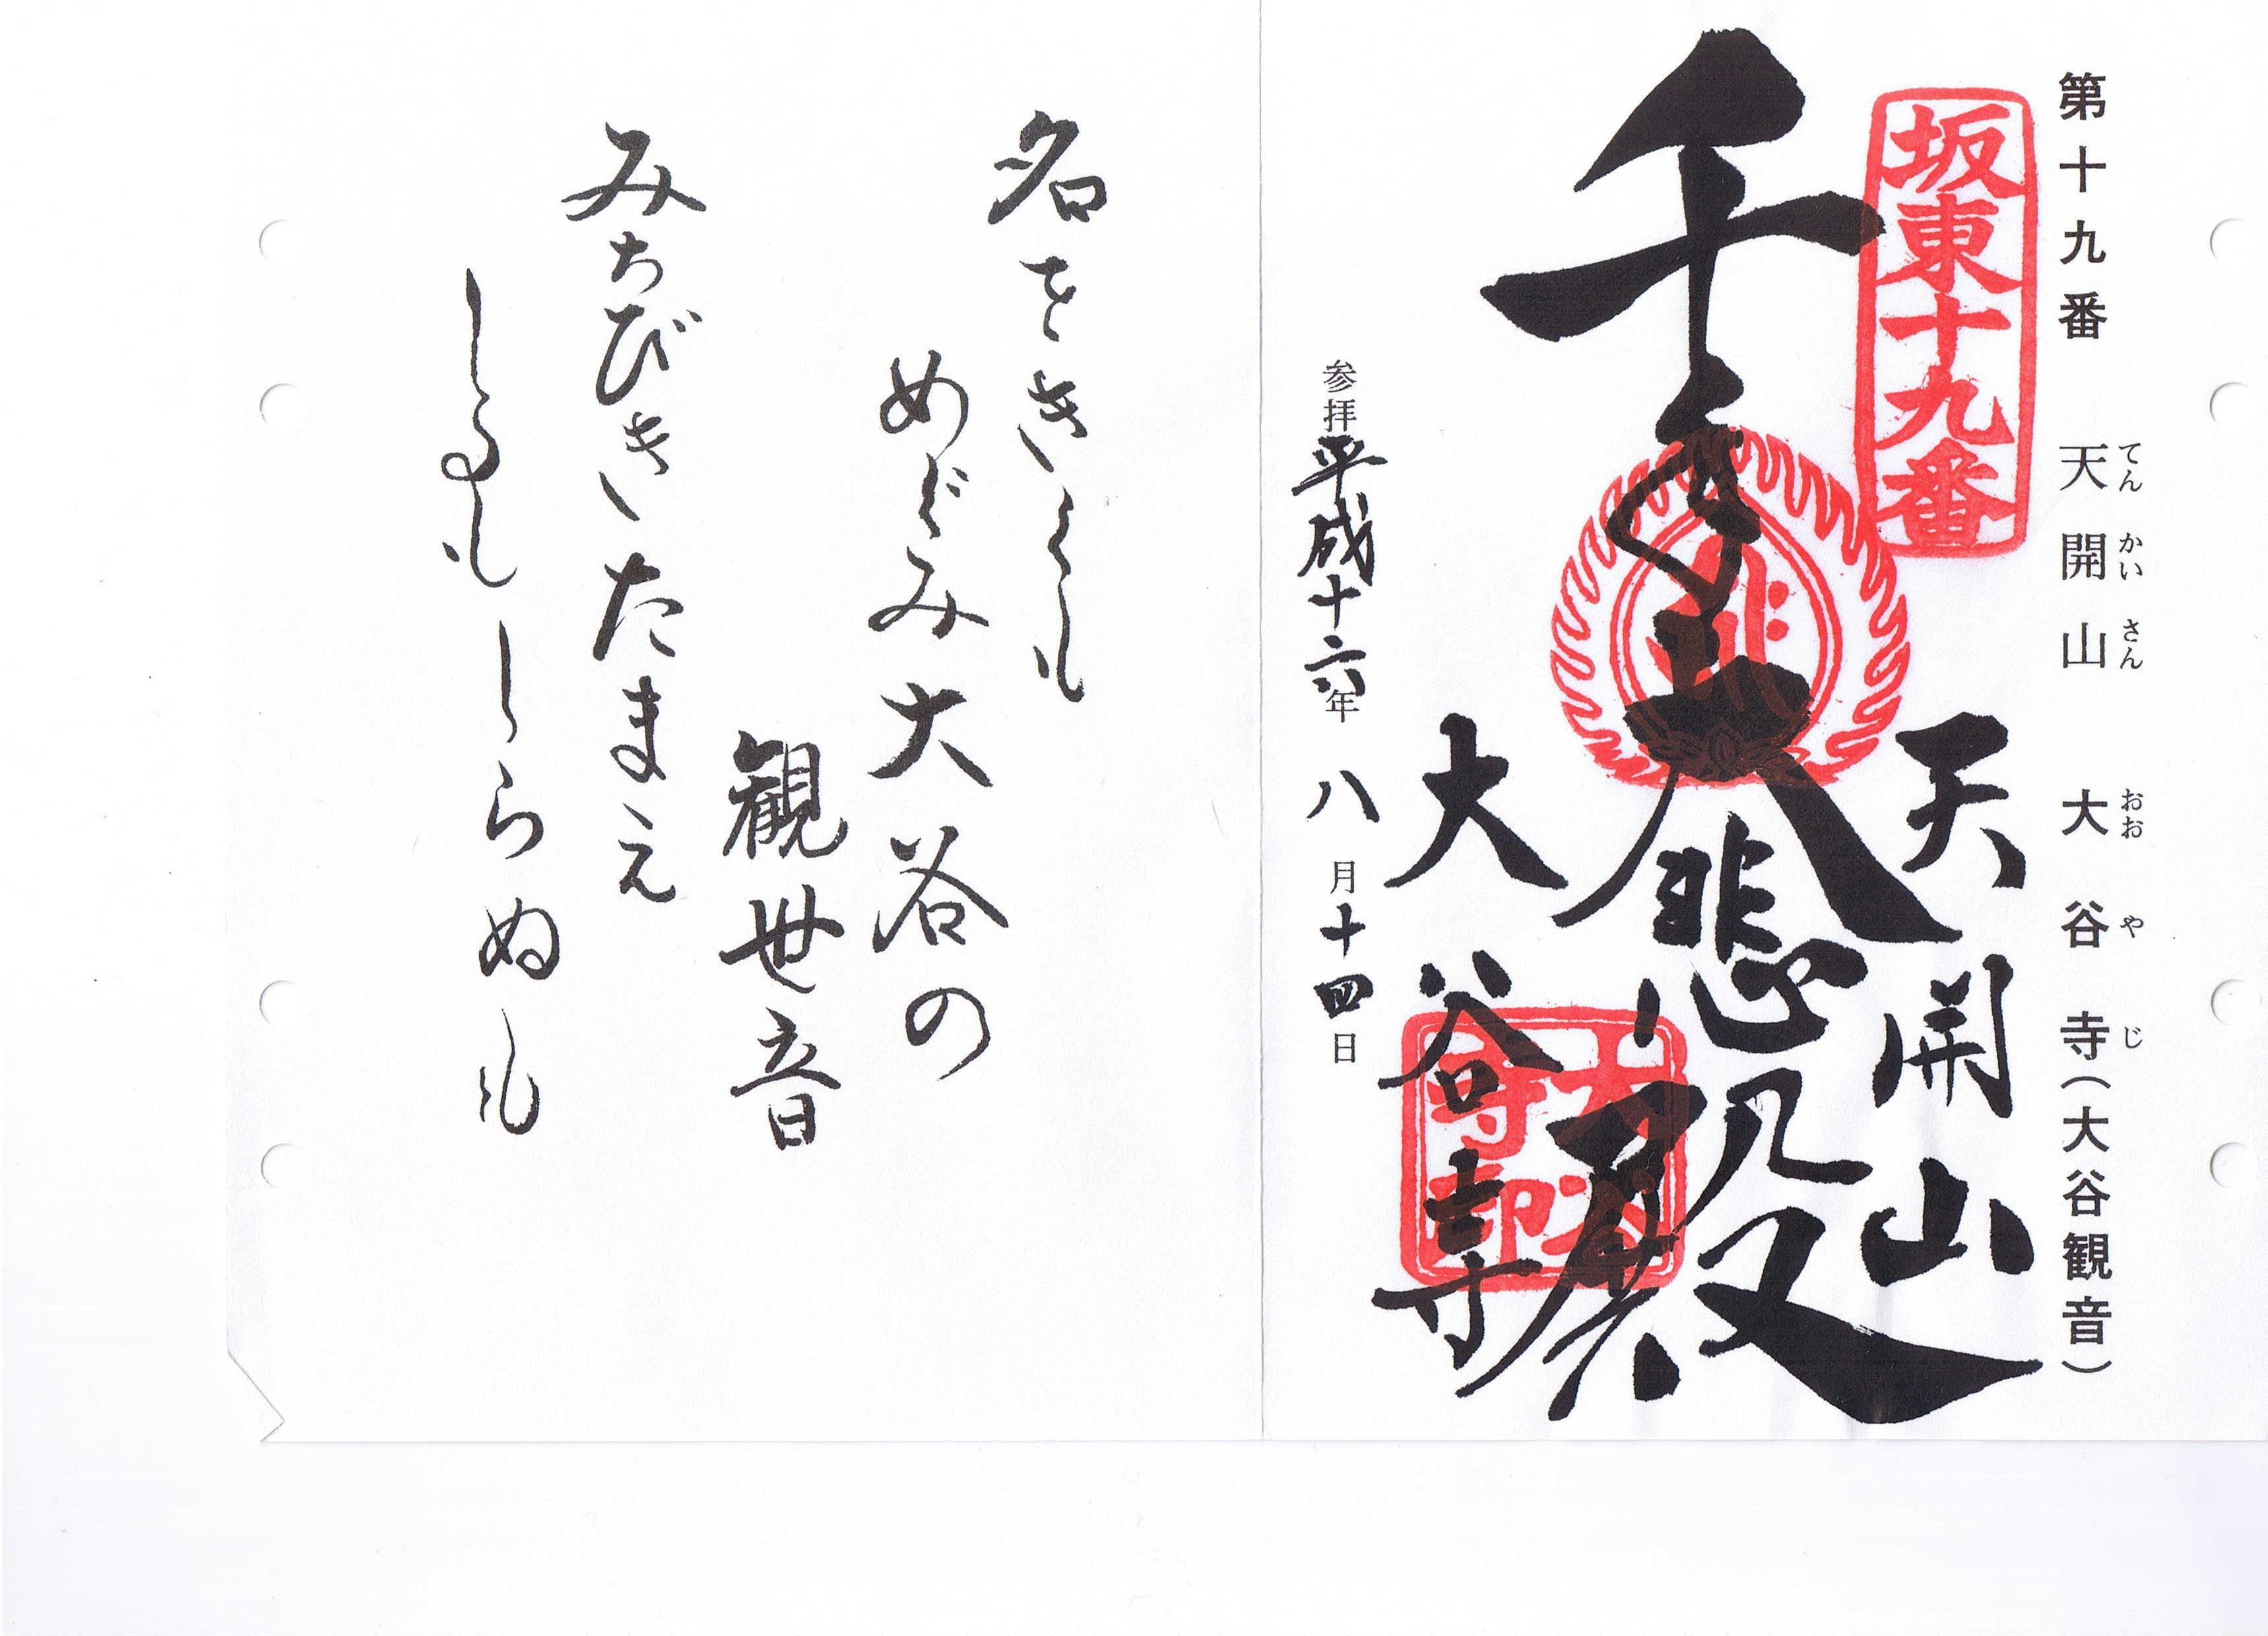 第十九番 天開山 大谷寺(大谷観音)
てんかいさん おおやじ
坂東十九番
天開山
千手大悲殿
大谷寺
大谷寺印
参拝平成十六年八月十四日
名をきくも
めぐみ大谷の
観世音
みちびきたまえ
しるもしらぬも